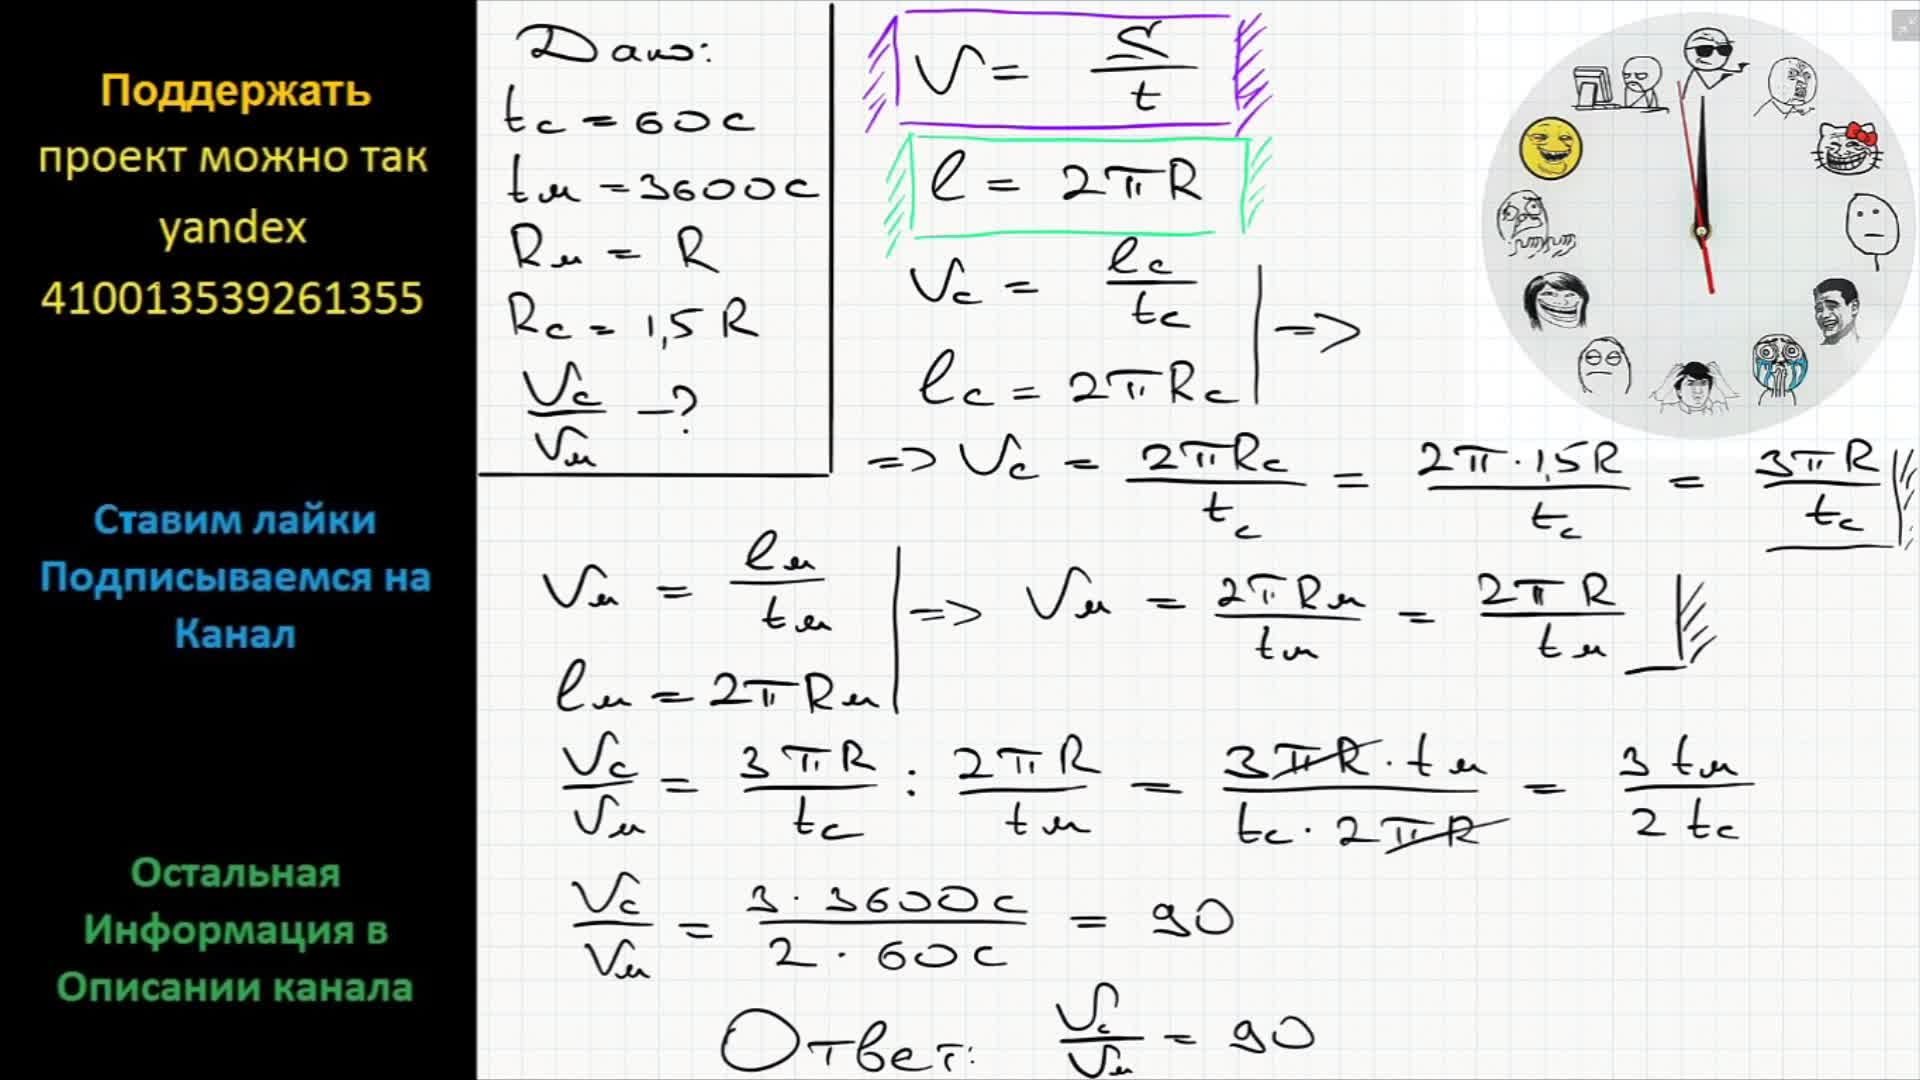 Поддержать
проект можно так
yandex
410013539261355
Ставим лайки
Подписываемся на
Канал
Остальная
Информация в
Описании канала
Дано:
tс = 60 с
tм = 3600 с
Rм = R
Rс = 1,5 R
Vс/Vм - ?
V = S/t
l = 2πR
Vс = lс/tс
lс = 2πRс | =>
=> Vс = 2πRс/tс = 2π·1,5R/tс = 3πR/tс
Vм = lм/tм
lм = 2πRм | => Vм = 2πRм/tм = 2πR/tм
Vс/Vм = 3πR/tс : 2πR/tм = 3πR·tм/tс·2πR = 3tм/2tс
Vс/Vм = 3·3600с/2·60с = 90
Ответ: Vс/Vм = 90